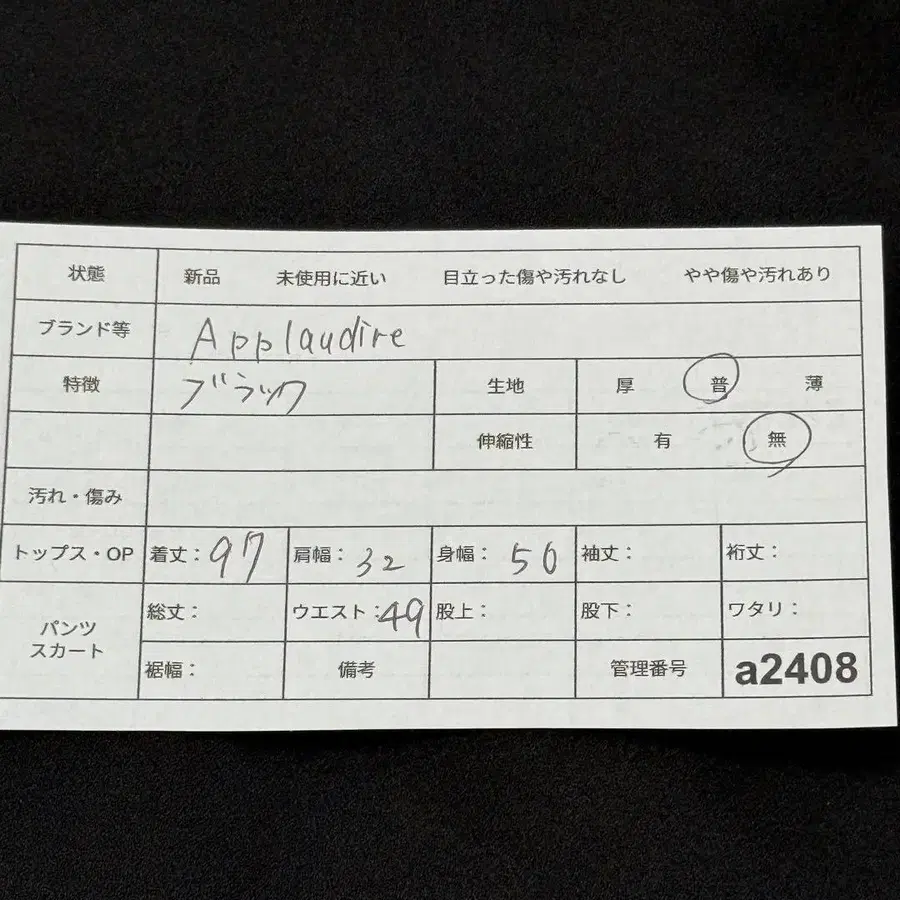 状態 新品 未使用に近い 目立った傷や汚れなし やや傷や汚れあり
ブランド等 Applaudire
特徴 ブラック 生地 厚 普 薄
伸縮性 有 無
汚れ・傷み
トップス・OP 着丈：97 肩幅：32 身幅：50 袖丈： 裄丈：
パンツ スカート 総丈： ウエスト：49 股上： 股下： ワタリ：
裾幅： 備考 管理番号 a2408